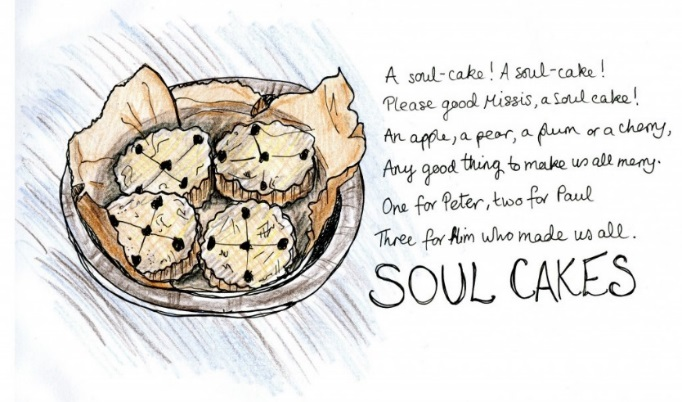 A soul-cake! A soul-cake!
Please good Missis, a soul cake!
An apple, a pear, a plum or a cherry,
Any good thing to make us all merry.
One for Peter, two for Paul
Three for Him who made us all.
SOUL CAKES